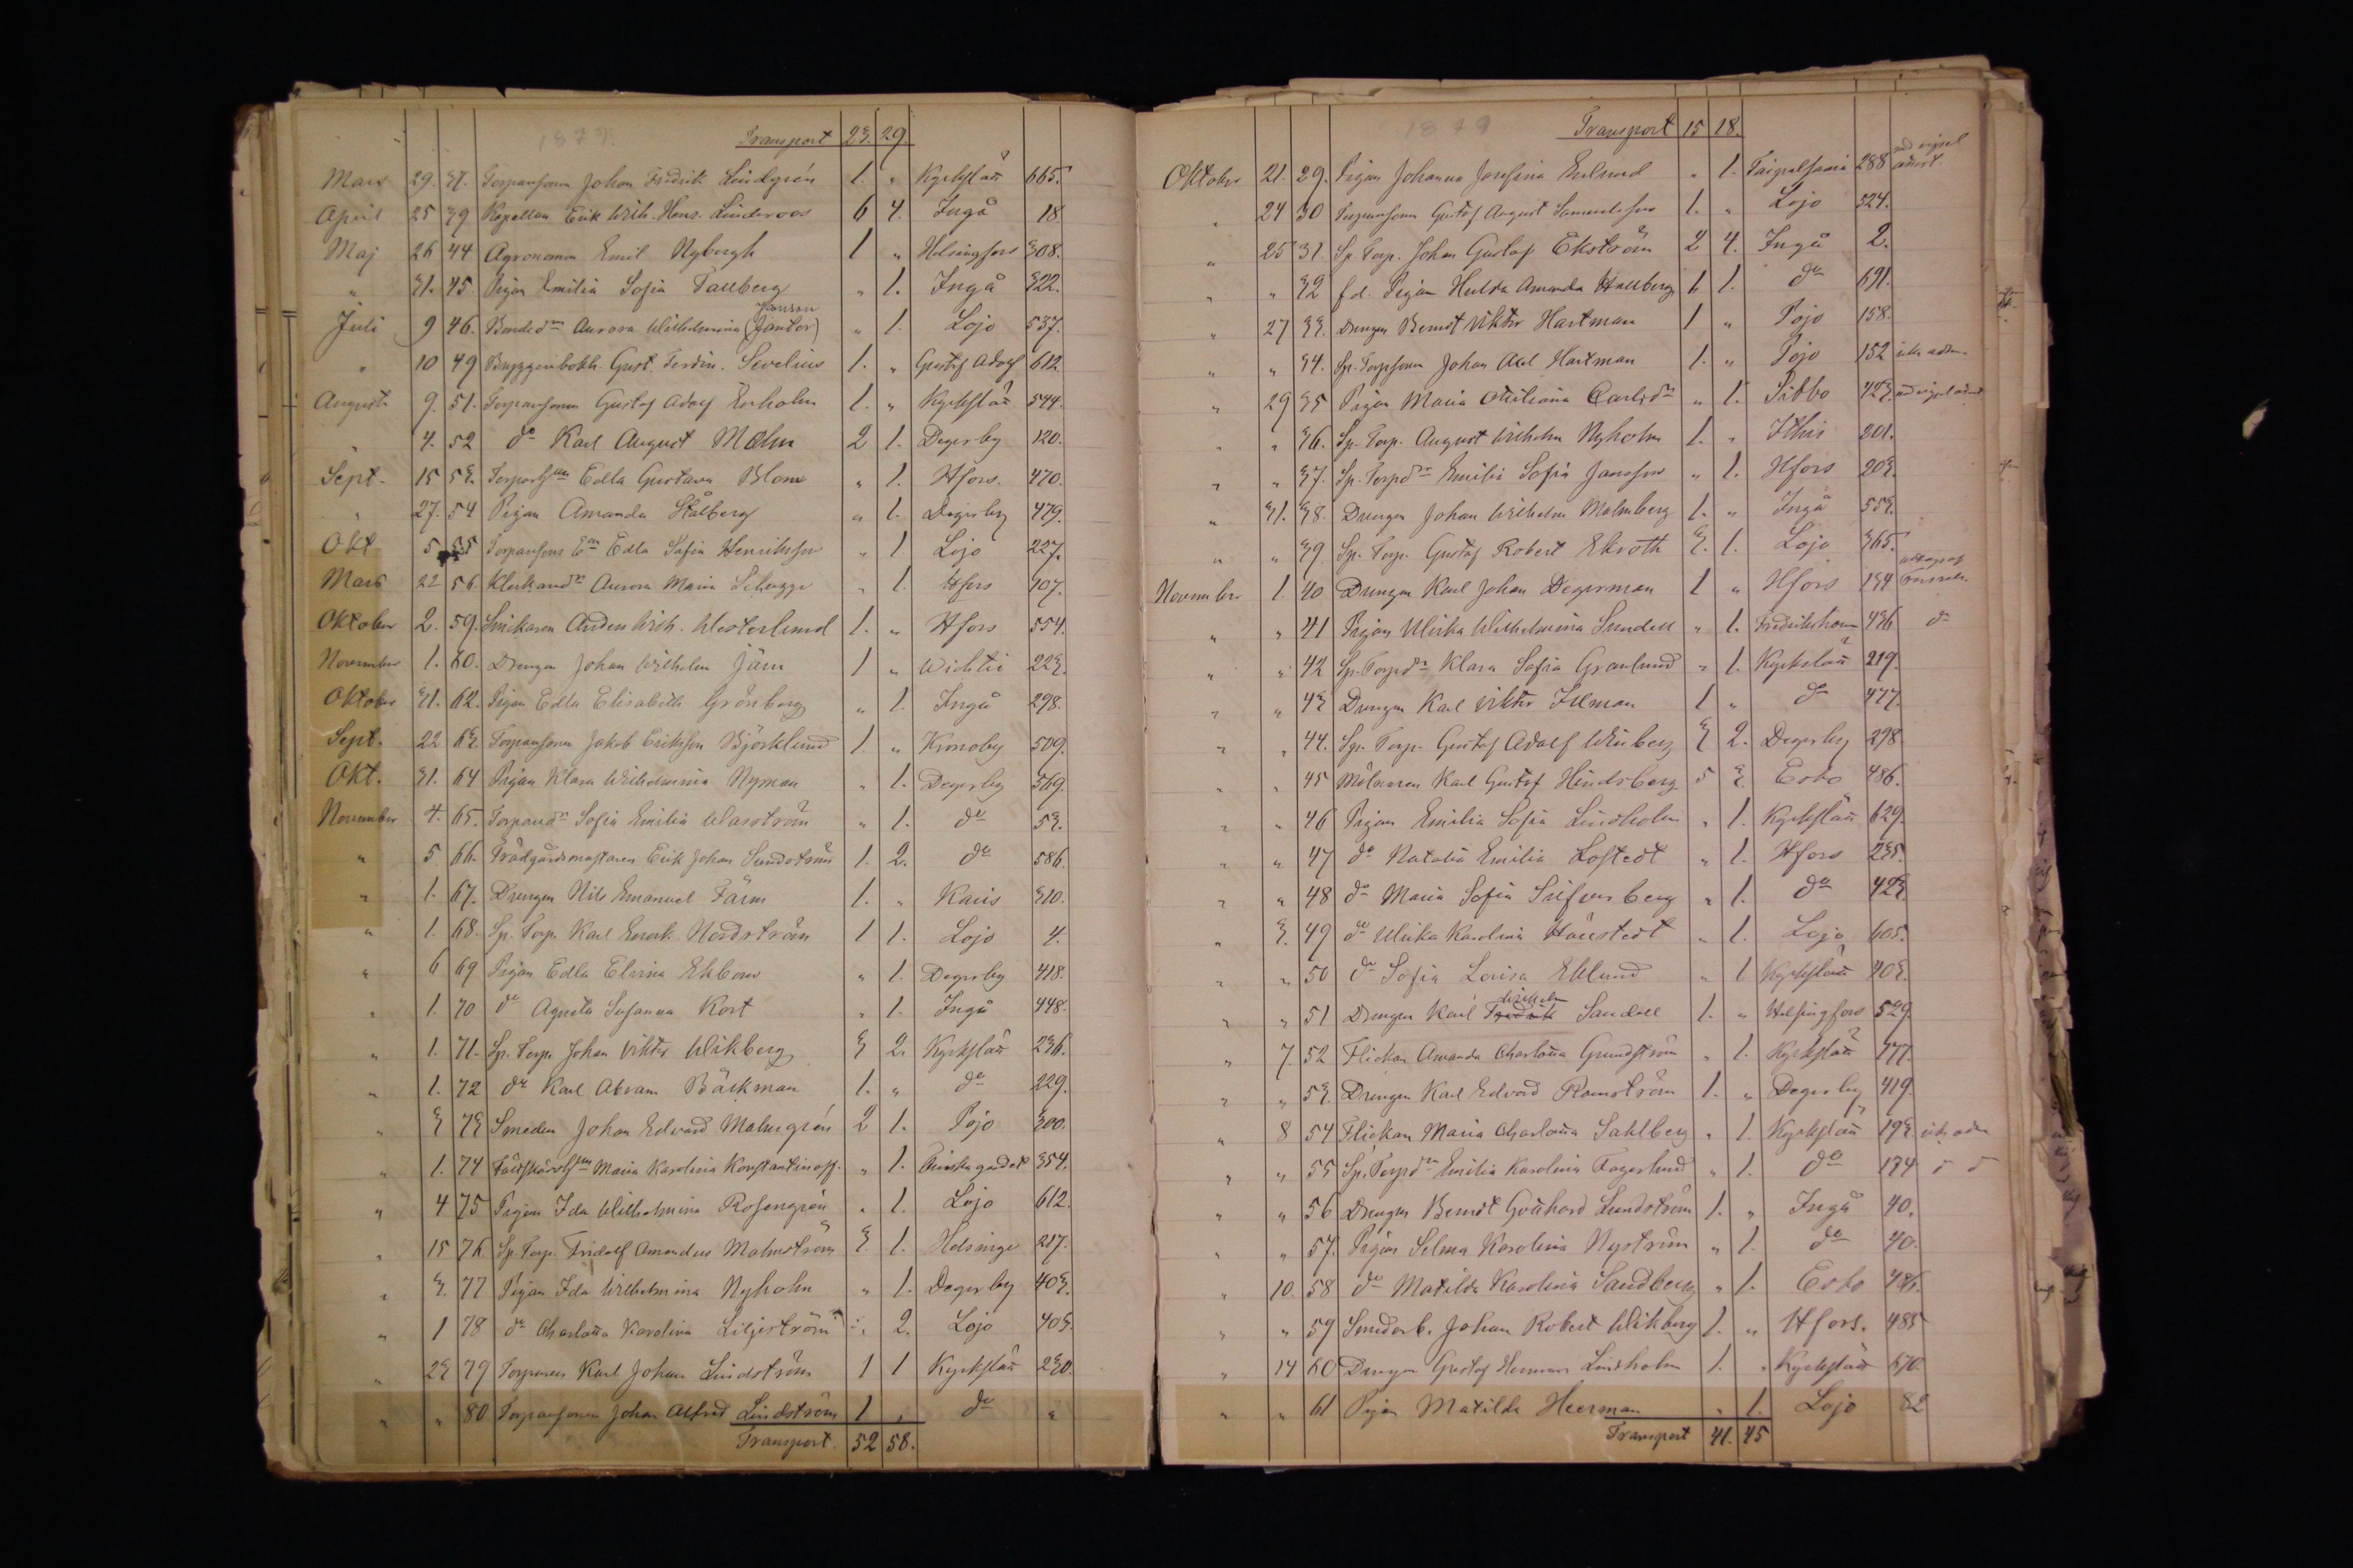 1879.
Transport 23. 29.
Mars 29. 37. Torparesonen Johan Fredrik Lindgrén 1. " Kyrkslätt 665.
April 25 39 Kapellan Erik Wilh. Hens. Linderoos 6 4. Ingå 18
Maj 26 44 Agronomen Emil Nybergh 1 " Helsingfors 308.
" 31. 45. Pigan Emilia Sofia Tallberg " 1. Ingå 322.
Jansson
Juli 9 46. Bonded:r Aurora Wilhelmina (Jantor) " 1. Lojo 537.
" 10 49 Bryggeribokh. Gust. Ferdin. Sevelius 1. " Gustaf Adolf 612
Augusti 9. 51. Torparesonen Gustaf Adolf Enholm 1. " Kyrkslätt 544.
" 4. 52 d:o Karl August Malm 2 1. Degerby 120.
Sept. 15 53. Edla Gustava Blom " 1. Hfors. 470.
" 27. 54 Pigan Amanda Stålberg " 1. Degerby 479.
Okt 5 55 Edla Sofia Henriksson " 1 Lojo 227.
Mars 22 56 Aurora Maria " 1. Hfors 407.
Oktober 2. 59. Anders Wilh. Westerlund 1. " Hfors 554.
November 1. 60. Drengen Johan Wilhelm Järn 1 " Wichtis 223.
Oktober 31. 62. Pigan Edla Elisabeth Grönberg " 1. Ingå 298.
Sept. 22 63. Torparesonen Jakob Eriksson Björklund 1. " Kronoby 509.
Okt. 31. 64 Pigan Klara Wilhelmina Nyman " 1. Degerby 569.
November 4. 65. Torpared:r Sofia Emilia Wasström " 1. d:o 53.
" 5. 66. Trädgårdsmästaren Erik Johan Sundström 1. 2. d:o 586.
" 1. 67. Drengen Nils Emanuel Färm 1. " Karis 310.
" 1. 68. Sp. Torp. Karl Henrik Nordström 1 1. Lojo 4.
" 6 69 Pigan Edla Elvira Ekbom " 1. Degerby 418.
" 1. 70 d:o Agneta Susanna Kort " 1. Ingå 448.
" 1. 71. Sp. Torp. Johan Viktor Wikberg 3 2. Kyrkslätt 236.
" 1. 72 d:o Karl Abram Bäckman 1. " d:o 229.
" 3 73 Smeden Johan Edvard Malmgrén 2 1. Pojo 300.
" 1. 74 Maria Karolina Konstantinoff. " 1. 354.
" 4 75 Pigan Ida Wilhelmina Rosengrén " 1. Lojo 612.
" 15 76 Sp. Torp. Fridolf Amandus Malmström 3. 1. Helsinge 217.
" 3. 77 Pigan Ida Wilhelmina Nyholm " 1. Degerby 403.
" 1 78 d:o Charlotta Karolina Liljeström " 2. Lojo 403.
" 23 79 Torparen Karl Johan Lindström 1 1 Kyrkslätt 230.
" " 80 Torparesonen Johan Alfred Lindström 1 " d:o "
Transport. 52 58.
1879
Transport 15 18.
Oktober 21. 29. Pigan Johanna Josefina Enlund " 1. Taipalsaari 288
" 24 30 Torparesonen Gustaf August Samuelsson 1. " Lojo 324.
" 25 31. Sp. Torp. Johan Gustaf Ekström 2 4. Ingå 2.
" " 32 f.d. Pigan Hulda Amanda Hallberg 1 1. d:o 691.
" 27 33. Drengen Berndt Viktor Hartman 1 " Pojo 158.
" " 34. Sp. Torpsonen Johan Axel Hartman 1. " Pojo 152
" 29 35 Pigan Maria Carlsd:r " 1. Sibbo 423.
" " 36. Sp. Torp. August Wilhelm Nyholm 1. " Ithis 201.
" " 37. Sp. Torpd:r Emilia Sofia Jansson " 1. Hfors 203.
" 31. 38. Drengen Johan Wilhelm Malmberg 1. " Ingå 553.
" " 39 Sp. Torp. Gustaf Robert Ekroth 3. 1. Lojo 365.
November 1. 40 Drengen Karl Johan Degerman 1 " Hfors 134
" " 41 Pigan Ulrika Wilhelmina Sundell " 1. Fredrikshamn 436 d:o
" " 42 Sp. Torpd:r Klara Sofia Granlund " 1. Kyrkslätt 219.
" " 43 Drengen Karl Viktor Illman 1 " d:o 477.
" " 44. Sp. Torp. Gustaf Adolf Winberg 3 2. Degerby 298
" " 45 Mölnaren Karl Gustaf Hindsberg 5 3. Esbo 486.
" " 46 Pigan Emilia Sofia Lindholm " 1. Kyrkslätt 629.
" " 47 d:o Natalia Emilia Lofstedt " 1. Hfors 235.
" " 48 d:o Maria Sofia Silfversberg " 1. d:o 423.
" 3. 49 d:o Ulrika Karolina " 1. Lojo 605.
" " 50 d:o Sofia Lovisa Eklund " 1 Kyrkslätt 403.
Wilhelm
" " 51 Drengen Karl Fredrik Sandell 1. " Helsingfors 529
" 7. 52 Flickan Amanda Charlotta Grundström " 1. Kyrkslätt 177.
" " 53. Drengen Karl Edvard Ramström 1. " Degerby 419.
" 8 54 Flickan Maria Charlotta Sahlberg " 1. Kyrkslätt 193
" " 55 Sp. Torpd:r Emilia Karolina Fagerlund " 1. d:o 134
" " 56 Drengen Berndt Gotthard Lundström 1. " Ingå 40.
" " 57. Pigan Selma Karolina Nyström " 1. d:o 40.
" 10. 58 d:o Matilda Karolina Sandberg " 1. Esbo 486.
" " 59 Smedarb. Johan Robert Wikberg 1. " Hfors. 485
" 14 60 Drengen Gustaf Herman Lindholm 1. " Kyrkslätt 670.
" " 61 Pigan Matilda Heerman " 1. Lojo 82
Transport 41. 45